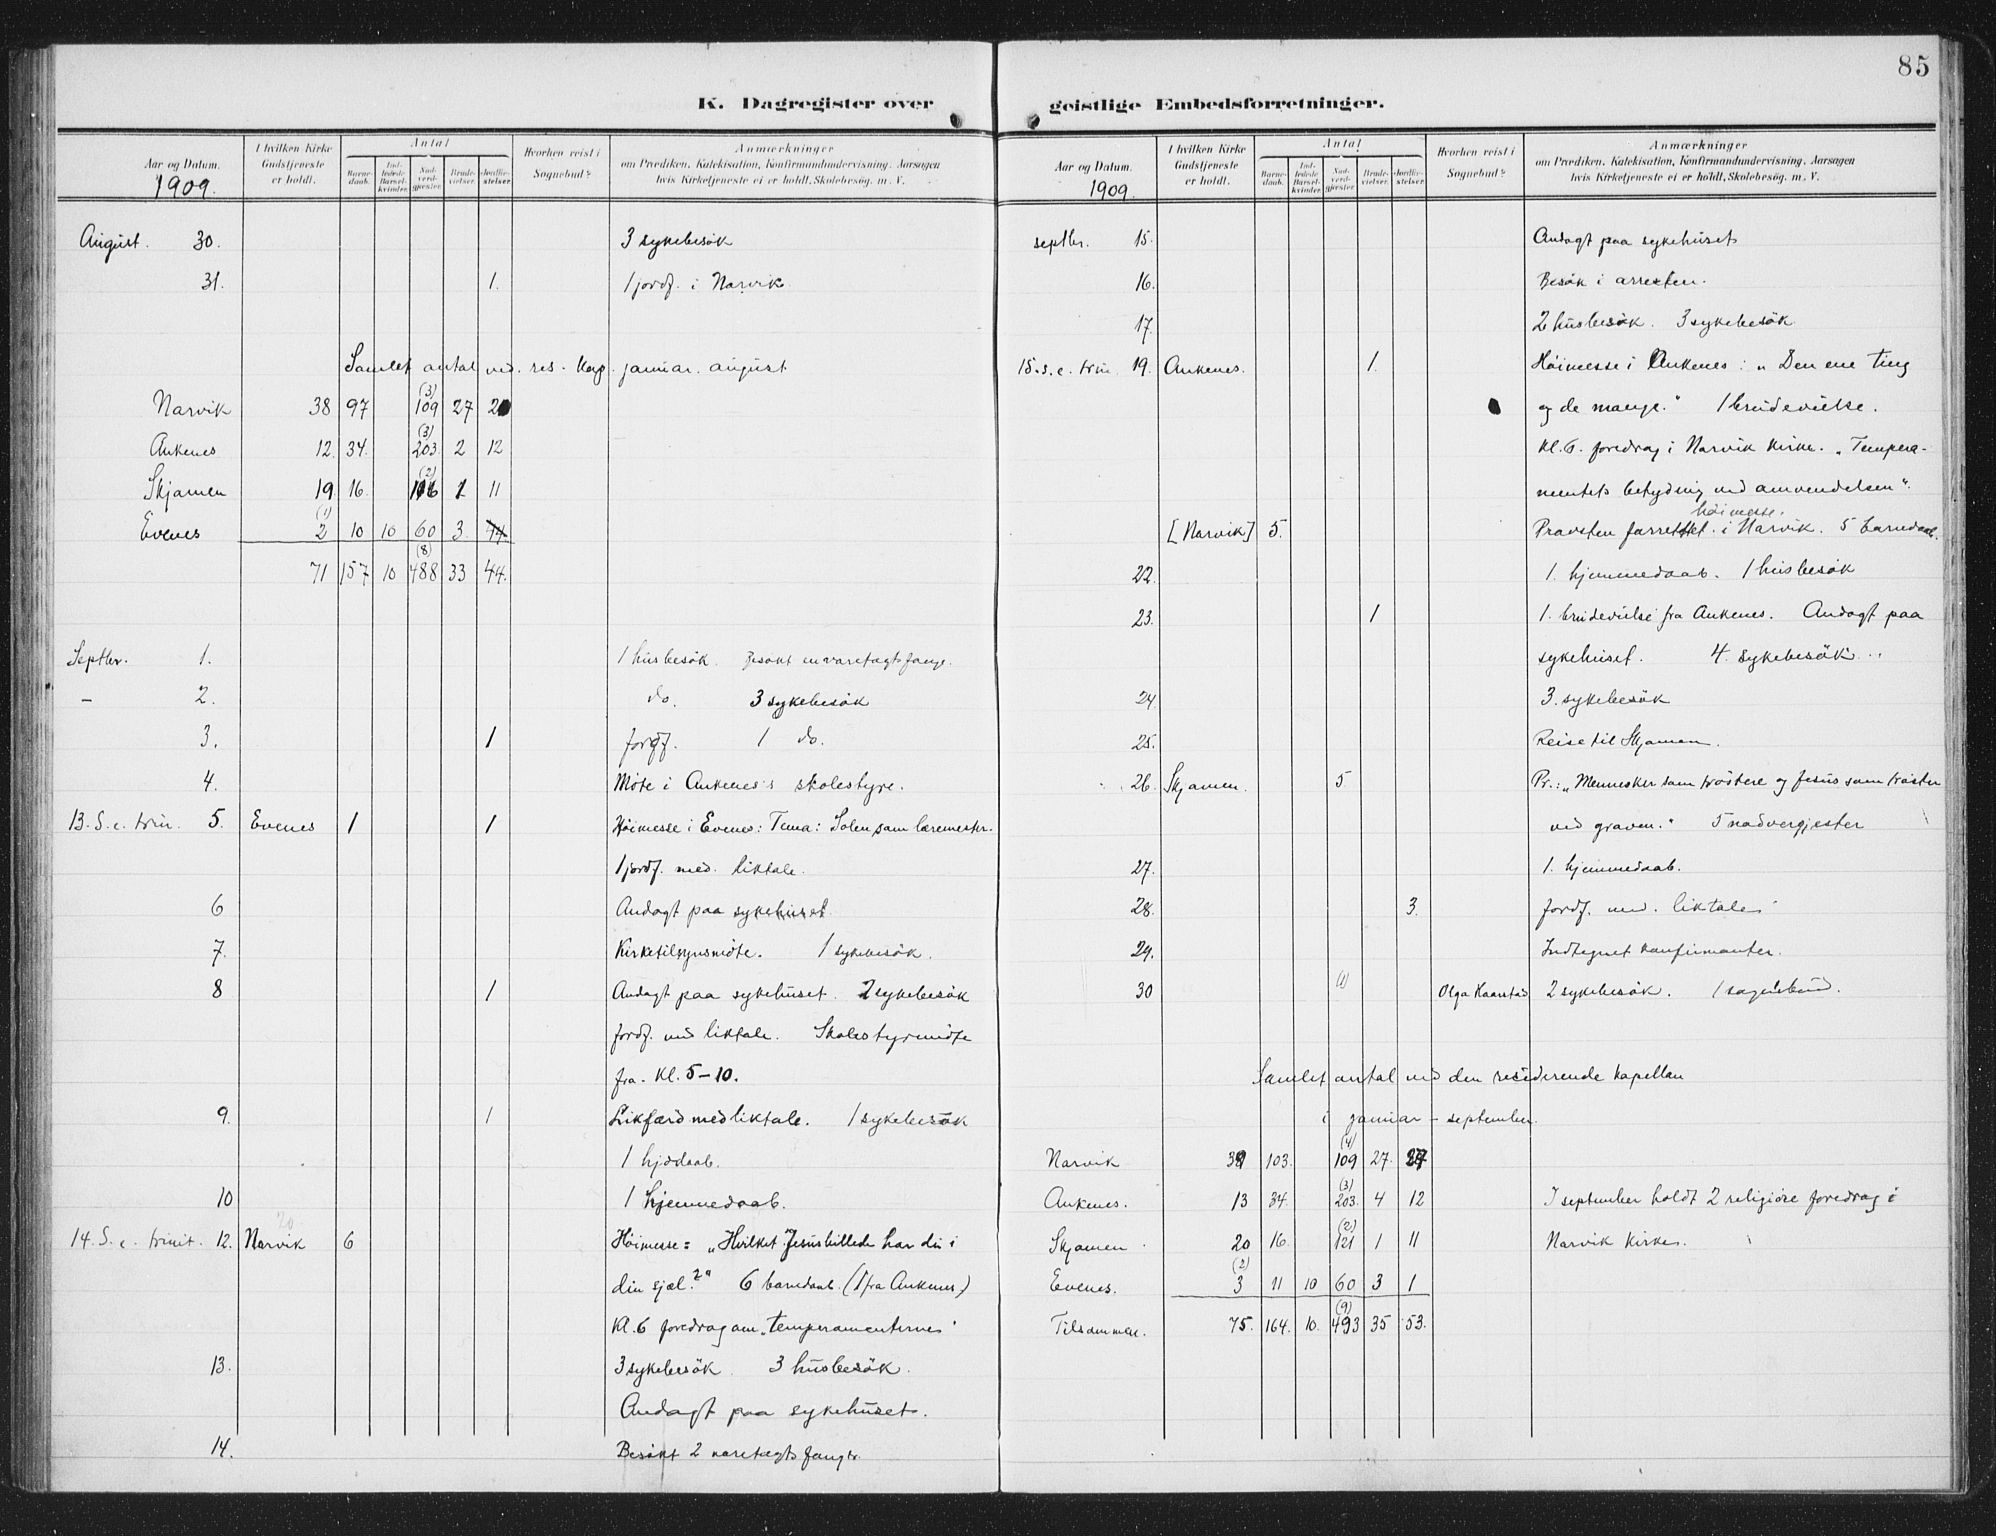 85
K. Dagregister over
Aar og Datum.
1909.
I hvilken Kirke Gudstjeneste er holdt.
Antal
Barnedaab.
Indledede Barselkvinder.
Nadverdgjester
Brudevielser.
Jordfæstelser
Hvorhen reist i Sognebud?
Anmærkninger
om Prædiken, Katekisation, Konfirmandundervisning, Aarsagen
hvis Kirketjeneste ei er holdt, Skolebesøg. m. V.
August. 30. 3 sykebesök
31. 1. 1 jordf. i Narvik.
Samlet antal ved res. kap. januar. august.
(3)
Narvik 38 97 109 27
(3)
Ankenes 12. 34. 203 2 12
(2)
Skjomen 19 16. 116 1 11
(1)
Evenes 2 10 10 60 3
(8)
71 157 10 488 33 44.
Septbr. 1. 1 husbesök. Besökt en varetægtsfange.
– 2. do. 3 sykebesök
3. 1 jordf. 1 do.
4. Möte i Ankenes's skolestyre.
13. S. e. trin. 5. Evenes 1 1 Höimesse i Evenes: Tema: Solen som læremester.
1 jordf. med. liktale.
6 Andagt paa sykehuset.
7. Kirketilsynsmöte. 1 sykebesök.
8 1 Andagt paa sykehuset. 2 sykebesök
Jordf. med liktale. Skolestyremöte
fra. Kl. 5–10.
9. 1 Likfærd med liktale. 1 sykebesök
1 hjdaab.
10 1 hjemmedaab.
14. S. e. trinit. 12. Narvik 6 Höimesse: „Hvilket Jesusbillede har du i
din sjæl?" 6 barnedaab. (1 fra Ankenes.)
Kl. 6 foredrag om „temperamenternes"
13. 3 sykebesök. 3 husbesök.
Andagt paa sykehuset.
14. Besökt 2 varetægtsfanger.
geistlige Embedsforretninger.
Aar og Datum.
1909.
I hvilken Kirke Gudstjeneste er holdt.
Antal
Barnedaab.
Indledede Barselkvinder.
Nadverdgjester
Brudevielser.
Jordfæstelser
Hvorhen reist i Sognebud?
Anmærkninger
om Prædiken, Katekisation, Konfirmandundervisning, Aarsagen
hvis Kirketjeneste ei er holdt, Skolebesøg. m. V.
septbr. 15. Andagt paa sykehuset
16. Besök i arresten.
17. 2 husbesök. 3 sykebesök
15. s. e. trin. 19. Ankenes. 1. Höimesse i Ankenes: „Den ene ting
og de mange." 1 brudevielse.
Kl. 6. foredrag i Narvik kirke. „Tempera-
mentets betydning ved omvendelsen".
höimesse.
[Narvik] 5. Provsten forrettet. i Narvik. 5 barnedaab.
22. 1. hjemmedaab. 1 husbesök
23. 1 1. brudevielse fra Ankenes. Andagt paa
sykehuset. 4. sykebesök.
24. 3. sykebesök
25. Reise til Skjomen.
26. Skjomen. 5. Pr.: „Mennesker som tröstere og Jesus som tröster
ved graven." 5 nadvergjester
27. 1. hjemmedaab.
28. 3. Jordf. med. liktaler
29. Indtegnet konfirmanter.
30 (1) Olga Kaarstad 2 sykebesök. 1 sognebud.
Samlet antal ved den residerende kapellan
i januar – september.
(4)
Narvik 103. 109 27.
(3)
Ankenes. 13 34. 203. 4 12 I september holdt 2 religiöse foredrag i
(2)
Skjomen 20 16. 121 1 11 Narvik kirke.
(2)
Evenes. 3 11 10 60 3 1
(9)
Tilsammen. 75. 164. 10. 493 35 53.